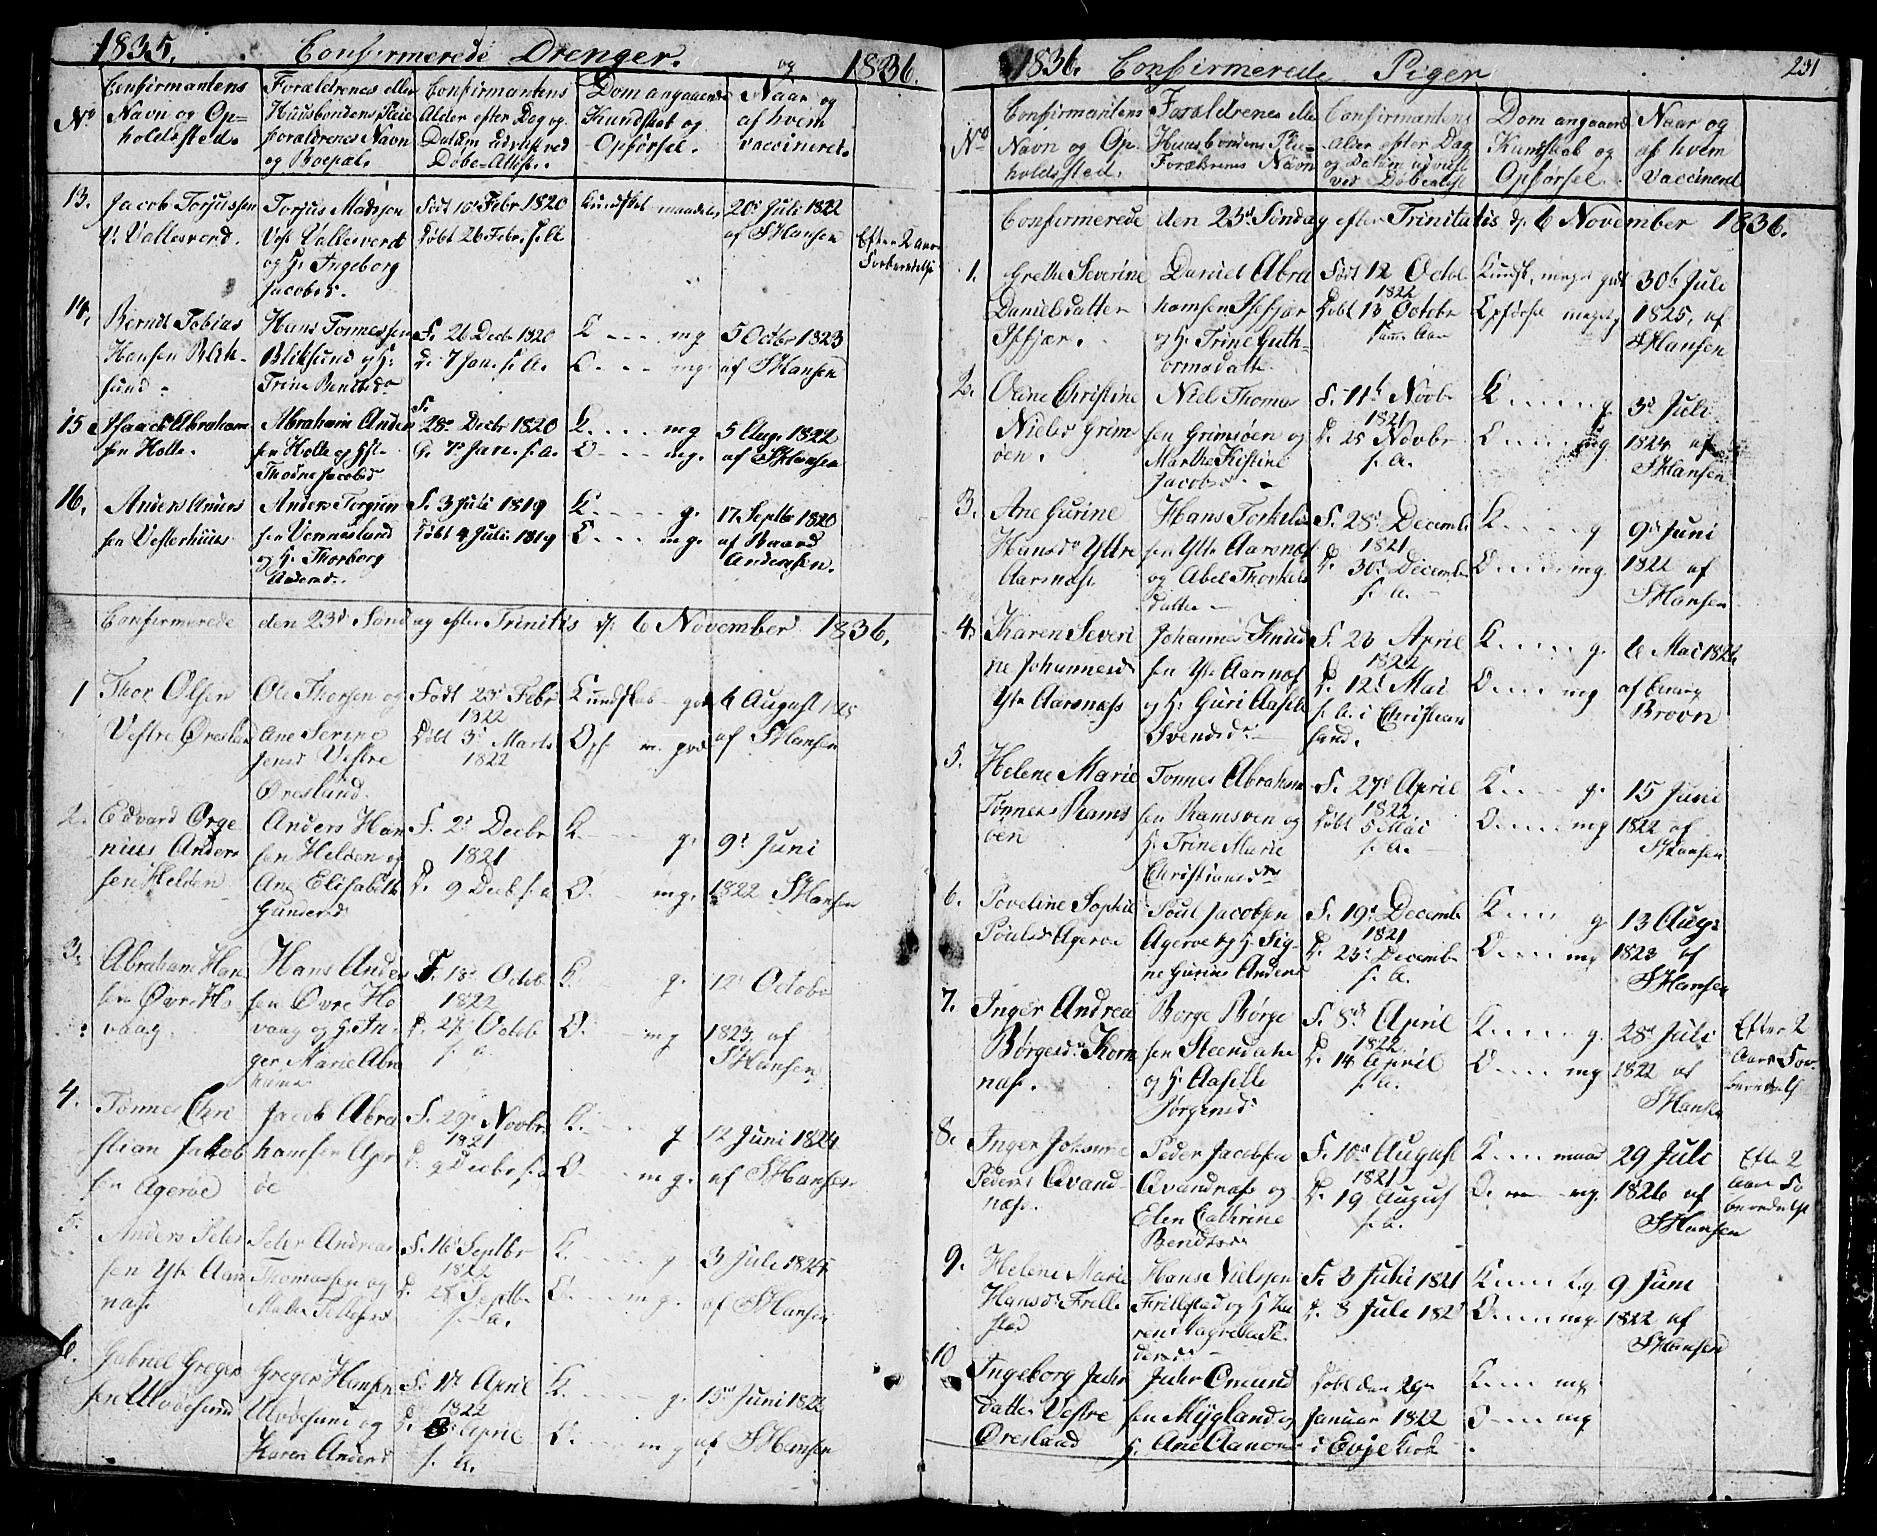 1835. Confirmerede Drenger. og 1836.
No
Confirmantens
Navn og Op=
holdssted.
Forældrenes eller
Huusbondens Pleie
forældrenes Navn
og Boepæl.
Confirmantens
Alder efter Dag og
Datum udviist ved
Døbe-Attest.
Dom angaaende
Kundskab og
Opførsel.
Naar og
af hvem
vaccineret.
13.
Jacob Torjussen
V. Vallesverd.
Torjus Madssen
Vest Vallesverd
og H. Ingeborg
Jacobsd.
Født 10 Febr 1820
Døbt 26 Febr. s. Aa
Kundskab maadelig
20d Juli 1822
af SHansen
Efter 2 Aars
Forberedelse
14.
Berndt Tobias
Hansen Blik-
sund.
Hans Tønnessen
Bliksund og H.
Trine Bentsd.
F. 26 Decbr 1820
D. 7 Jan. s. A.
K - - - mg
O. - - - mg.
5 Octbr 1823
af SHansen
15
Isaack Abraham
sen Holte.
Abraham Anders
sen Holte og
Thorine Jacobsd
F. 28de Decbr 1820
D. 7d Jan. s. a.
K. - - - mg
O - - - mg.
5 Aug. 1822
af SHansen
16.
Anders Anders
sen Vesterhuus
Anders Torgius
sen Vennesland
og H. Thorborg
Andersd.
F. 3 Juli 1819
Døbt 4 Juli 1819
K. - - - g.
O. - - - mg.
17 Septbr 1820
af Baard
Andersen.
Confirmerede den 23d Søndag efter Trinitis d. 6 November 1836.
1
Thor Olsen
Vestre Øresland
Ole Thorsen og
Ane Serine
Jensd Vestre
Øresland.
Født 23d Febr
1822
Døbt 3d Marts
1822
Kundskab - god
Opf. m. god
4 August 1825
af SHansen
2.
Edvard Ørge
nius Anders
sen Helden
Anders Han
sen Helden og
Ane Elisabeth
Gundersd
F. 2d Decbr
1821
D. 9 Decb. s. a
K. - - - g.
O. mg.
9d Juni
1822 SHansen
3.
Abraham Han
sen Øvre Ho
vaag.
Hans Anders
sen Øvre Ho
vaag og H. In
ger Marie Abra
hamsd
F. 18d Octob
1822
D. 27d Octob
s. a.
K. - - - g.
O. mg
12d Octobr
1823. af
SHansen
4.
Tønnes Chri
stian Jakob
sen Agerøe
Jacob Abra
hamsen Ager
øe
F. 29d Novbr
1821
D. 9 Decbr s. a
K. - - - g
O. - - mg.
12 Juni 1824
af SHansen
5.
Anders Peter
sen Yt. Aars
næs.
Peter Andreas
Thomassen og
F. 16d Septbr
1822
D. 28 Septb
s. a.
K. - - - g
O. - - - mg.
3 Juli 1825
af SHansen
6.
Gabriel Greger
sen Ulvøesund
Greger Hansen
Ulvøesund og
Karen Andersd
F. 1d April
1822
D. 8d April
s. a.
K. - - - g.
O. - - - mg
15d Juni 1822
af SHansen
1836. Confirmerede Piger 231
No
Confirmantens
Navn og Op.
holdssted.
Forældrenes elle
Huusbondens Plei-
Forældrenes Navn
Confirmantens
Alder efter Dag
og Datum udviist
ved Døbeattest
Dom angaaend
Kundskab og
Opførsel.
Naar og
af hvem
Vaccineret
Confirmerede den 23d Søndag efter Trinitatis d. 6 November 1836.
1.
Grethe Severine
Danielsdatter
Isefjær.
Daniel Abra
hamsen Isefjær
og H. Trine Guth-
ormsdatte
Født 12 Octob
1822
Døbt 13 Octobr
samme Aar
Kundsk. meget god
Opførsel meget g
30d Juli
1825. af
SHansen
2.
Oline Christine
Nielsd Grim
øen.
Niel Thomas
sen Grimsøen og
Marthe Kistine
Jacobsd.
F. 11d Novb
1821
D. 25 Novbr
s. A.
K - - - g.
O - - - mg
3d Juli
1824 af
SHansen
3.
Ane Gurine
Hansd. Yttre
Aarsnæs.
Hans Torkels
sen Ytt. Aarsnæs
og Abel Thorkels
datter
F. 28d Decembr
1821
D. 30d Decembr
s. A.
K - - - g
O - - - mg.
9d Juni
1822 af
SHansen
4.
Karen Severi
ne Johannesd
Ytr Aarsnæss
Johannes Knud
sen Ytr Aarsnæs
og H. Guri Aasille
Svendsd.
F. 23 April
1822
D. 12d Mai
s. A. i Christian
sand.
K. - - - g.
O - - - mg
6 Mai 1826
af
Brovn
5.
Helene Marie
Tønnesd Rams
øen
Tønnes Abraham
sen Ramsøen og
H. Trine Marie
Christiansd.
F. 27d April
1822
Døbt 5 Mai
s. a.
K. - - - g.
O. - - - mg
15 Juni
1822 af
SHansen
6.
Poveline Sophie
Poulsd. Agerøe
Poul Jacobsen
Agerøe og H. Sig-
ne Gurine Andersd
F. 19d Decembr
1821
D. 23d Decembr
s. A.
K. - - - g
O. - - - mg
13 Aug.
1823 af
SHansen
7.
Inger Andrea
Børgesd. Korn
næs.
Børge Børge
sen Steendalen
og H. Aasille
Jørgensd.
F. 8d April
1822
D. 14 April
s. A.
K. - - - g.
O. - - - mg
28d Juli
1822 af
SHansen
Efter 2
Aars For
beredelse
8.
Inger Johanne
Pedersd Qvand-
næs.
Peder Jacobsen
Qvandnæss og
Elen Cathrine
Bendtsd
F. 10d August
1821
D. 19 August
s. a.
K. - - - maad
O. - - - mg.
29 Juli
1826 af
SHansen
Efter 2
Aars Fo
beredelse
9.
Helene Marie
Hansd. Frille
stad
Hans Nielssen
Frillestad og H. Ka
ren Pe
dersd.
F. 3 Juli 1821
D. 8 Juli 1821
K. - - - tg
O. - - - mg.
9 Juni
1822 af
SHansen
10
Ingeborg Juhr
datter Vestre
Øresland
Juhr Omund
sen Mygland og
H. Ane Aanons
Døbt den 29de
Januar 1822
i Evje Kirke
K. - - - mg
O - - - mg